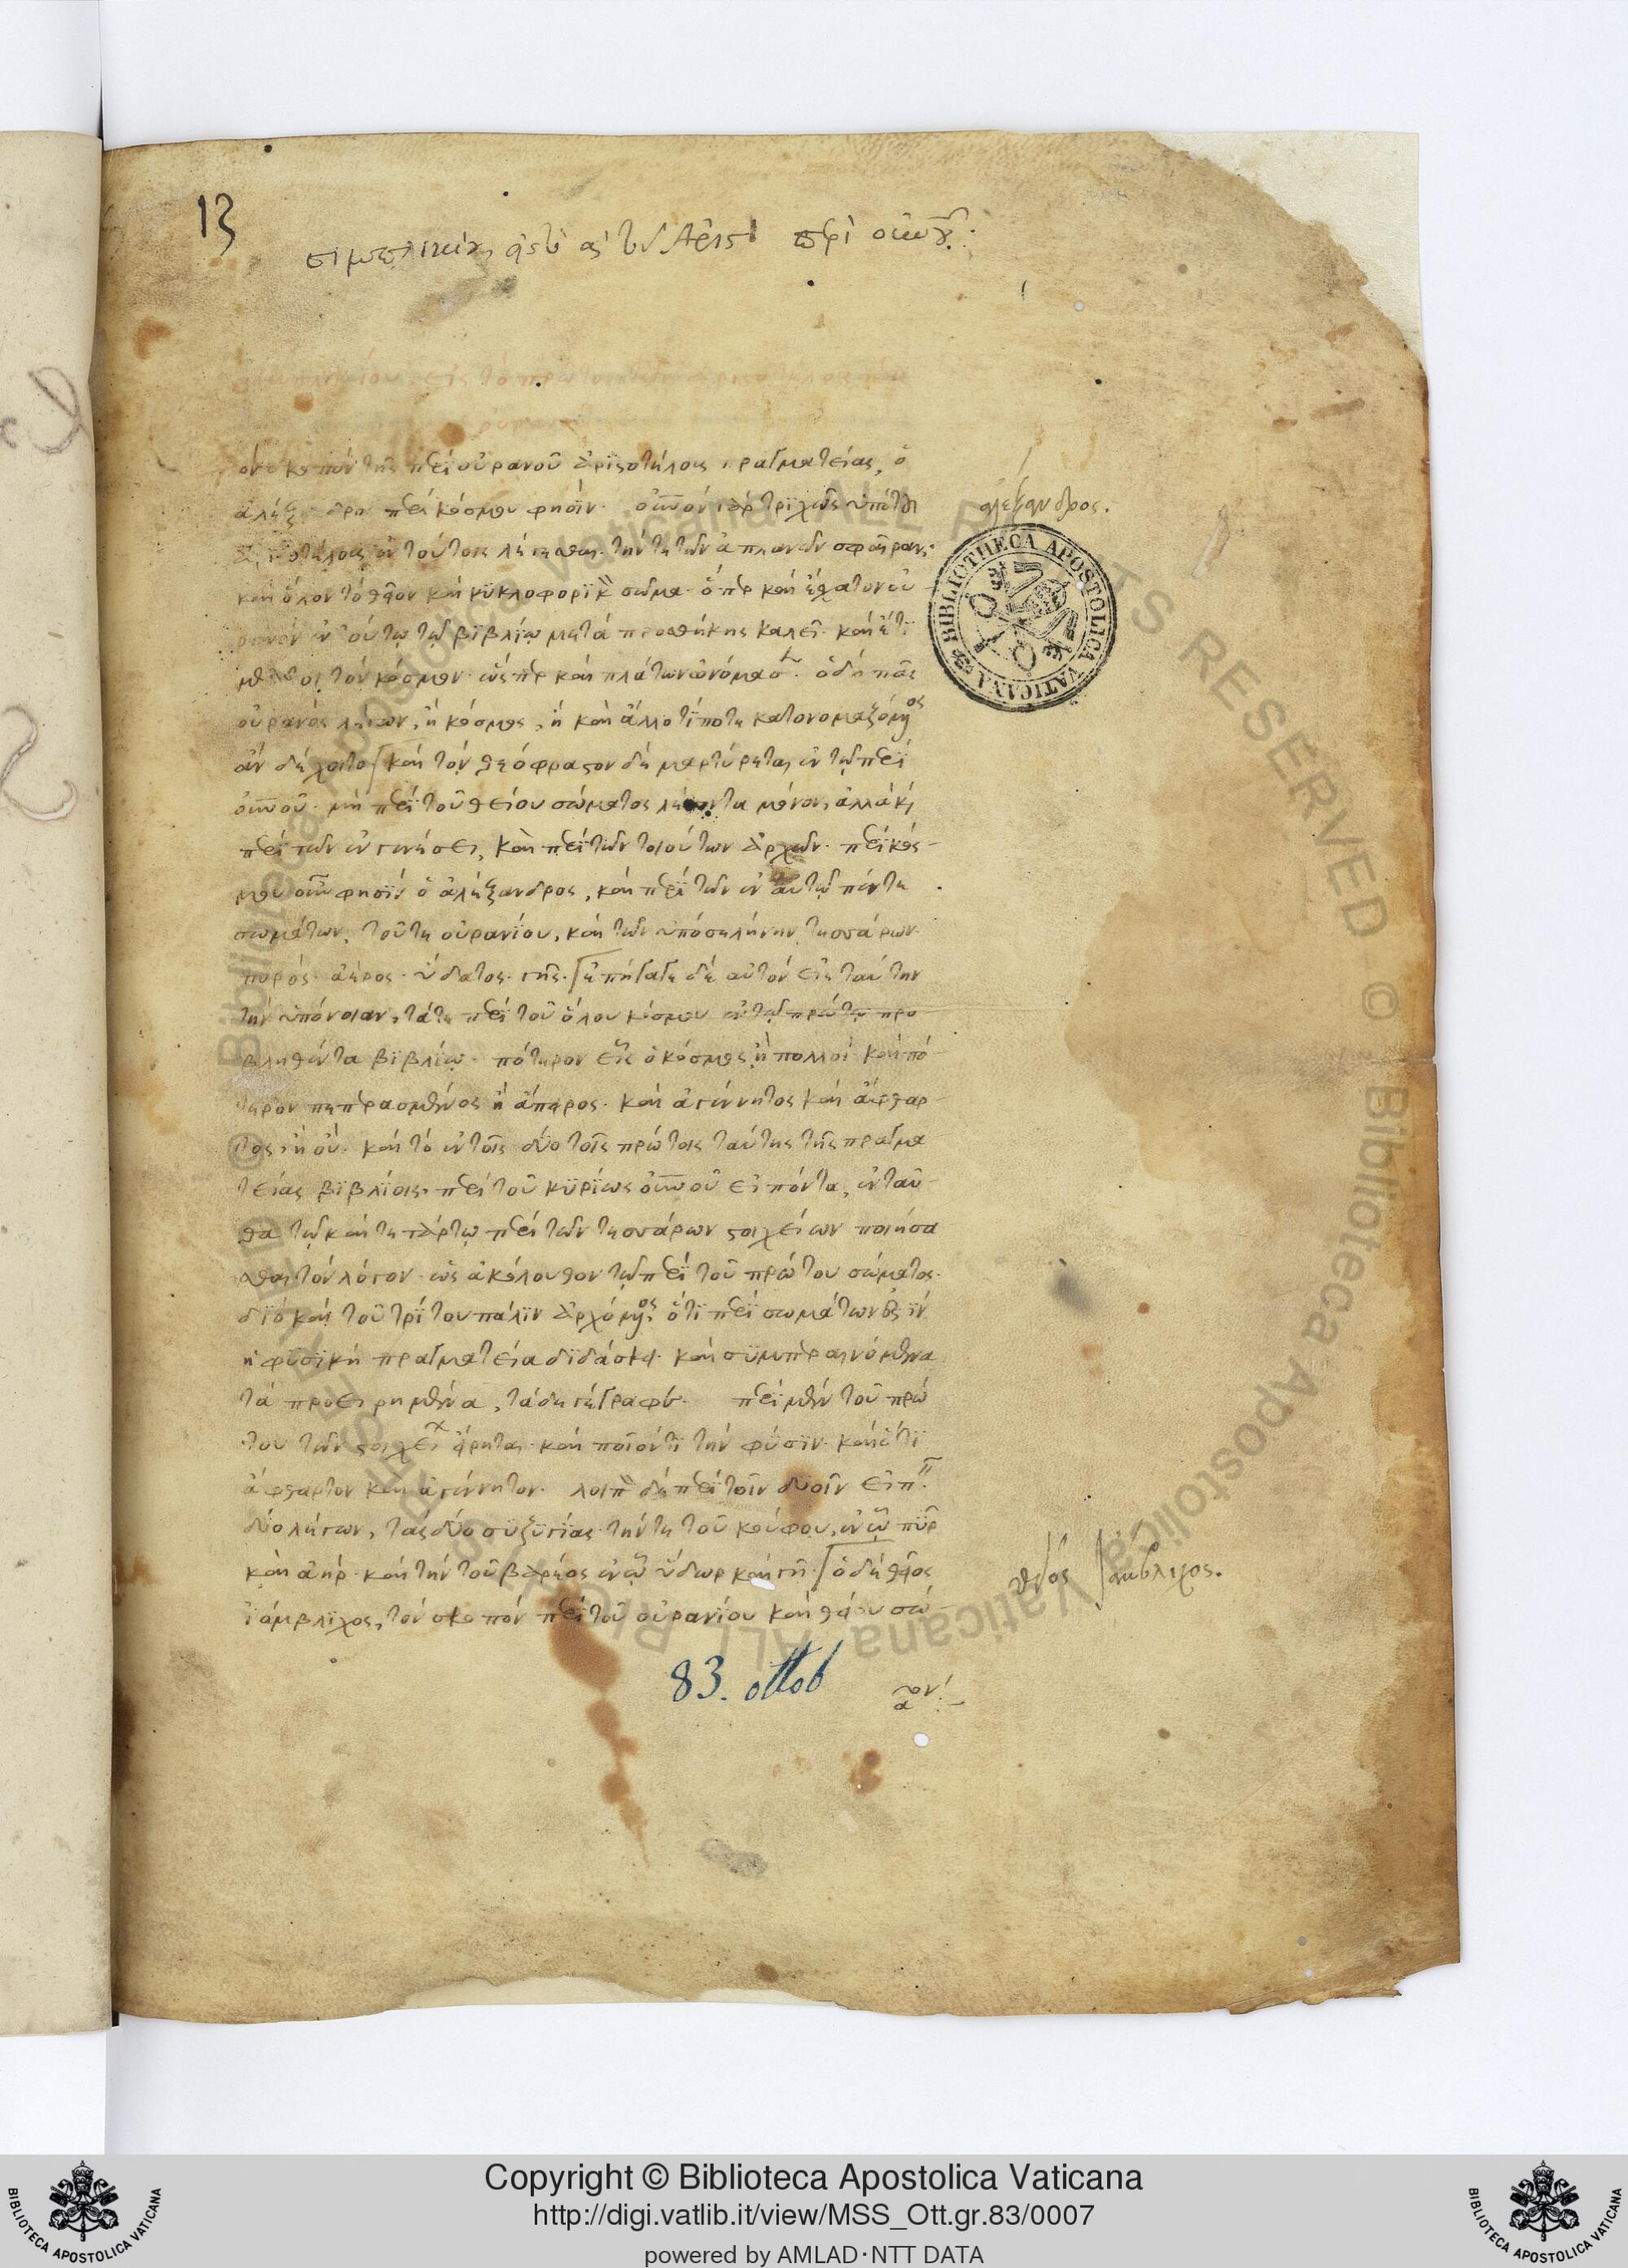 13
σιμπλικίου εἰς τὸ αʹ τοῦ Ἀριστ περὶ οὐνοῦ.
σιμπλικίου εἰς τὸ πρῶτον
ὸν σκοπὸν τῆς περὶ οὐρανοῦ ἀριστοτέλους πραγματείας, ὁ
ἀλέξανδρος περὶ κόσμου φησίν. οὐνὸν γὰρ τριχῶς ὑπὸ τοῦ
ἀριστοτέλους ἐν τούτοις λέγεσθαι. τήν τε τῶν ἀπλανῶν σφαῖραν.
καὶ ὅλον τὸ θεῖον καὶ κυκλοφορικ σῶμα. ὅπερ καὶ ἔσχατον οὐ
ρανὸν ἐν τούτῳ τῷ βιβλίῳ μετὰ προσθήκης καλεῖ. καὶ ἔτι
μέντοι τὸν κόσμον. ὥσπερ καὶ πλάτων ὠνόμασ. ὁ δὴ πᾶς
οὐρανὸς λέγων, ἢ κόσμος, ἢ καὶ ἄλλο τί ποτε κατονομαζόμενος
ἂν δέχοιτο καὶ τὸν θεόφραστον δὲ μαρτύρεται ἐν τῷ περὶ
οὐνοῦ. μὴ περὶ τοῦ θείου σώματος λέγοντα μόνον, ἀλλὰ κὶ
περὶ τῶν ἐν γενέσει, καὶ περὶ τῶν τοιούτων ἀρχῶν. περὶ κόσ
μου οὖν φησὶν ὁ ἀλέξανδρος, καὶ περὶ τῶν ἐν αὐτῷ πέντε
σωμάτων, τοῦ τε οὐρανίου, καὶ τῶν ὑπὸ σελήνην τεσσάρων.
πυρός. ἀέρος. ὕδατος. γῆς. ἐπήγαγε δὲ αὐτὸν εἰς ταύτην
τὴν ὑπόνοιαν, τά τε περὶ τοῦ ὅλου κόσμου ἐν τῷ πρώτῳ προ
βληθέντα βιβλίῳ. πότερον εἷς ὁ κόσμος, ἢ πολλοί. καὶ πό
τερον πεπερασμένος ἢ ἄπειρος. καὶ ἀγέννητος καὶ ἄφθαρ
τος, ἢ οὔ. καὶ τὸ ἐν τοῖς δύο τοῖς πρώτοις ταύτης τῆς πραγμα
τείας βιβλίοις περὶ τοῦ κυρίως οὐνοῦ εἰπόντα, ἐνταῦ
θα τῷ καὶ τετάρτῳ περὶ τῶν τεσσάρων στοιχείων ποιήσα
σθαι τὸν λόγον. ὡς ἀκόλουθον τῷ περὶ τοῦ πρώτου σώματος.
διὸ καὶ τοῦ τρίτου πάλιν ἀρχόμενος, ὅτι περὶ σωμάτων ἐστὶν
ἡ φυσικὴ πραγματεία διδάσκει. καὶ συμπεραινόμενα
τὰ προειρημένα, τάδε γέγραφεν. περὶ μὲν τοῦ πρώ
του τῶν στοιχεί εἴρηται. καὶ ποῖόν τι τὴν φύσιν. καὶ ὅτι
ἄφθαρτον καὶ ἀγέννητον. λοιπ δὲ περὶ τοῖν δυοῖν εἰπ.
δύο λέγων, τὰς δύο συζυγίας. τήν τε τοῦ κούφου, ἐν ᾧ πῦρ
καὶ ἀήρ. καὶ τὴν τοῦ βαρέος ἐν ᾧ ὕδωρ καὶ γῆ. ὁ δὲ θεῖος
ἰάμβλιχος, τὸν σκοπὸν περὶ τοῦ οὐρανίου καὶ θείου σώ
ἀλέξανδρος.
θεῖος ἰάμβλιχος.
83. ottob
BIBLIOTHECA APOSTOLICA VATICANA
Biblioteca Apostolica Vaticana ALL RIGHTS RESERVED ©
Copyright © Biblioteca Apostolica Vaticana
http://digi.vatlib.it/view/MSS_Ott.gr.83/0007
powered by AMLAD·NTT DATA
BIBLIOTECA APOSTOLICA VATICANA
BIBLIOTECA APOSTOLICA VATICANA